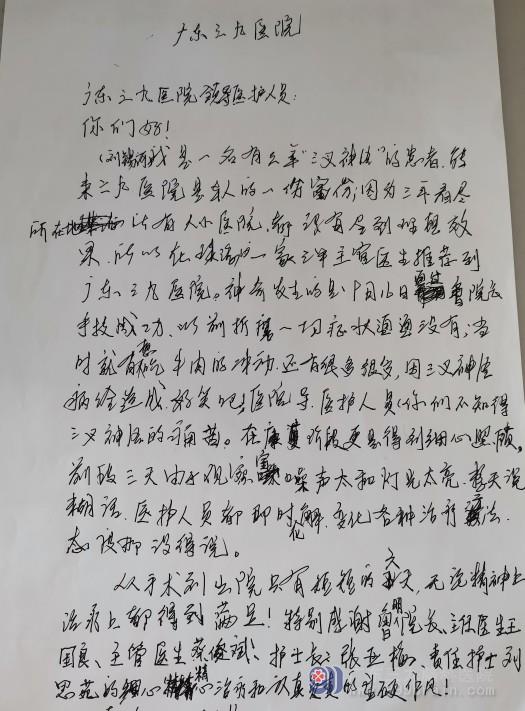 广东三九医院
广东三九医院领导医护人员:
你们好!
我是一名有三年“三叉神经”的患者,转
来三九医院是本人的一份,因为三年看尽
所在地所有大小医院,都没有达到理想效
果,所以在一家三甲主管医生推荐到
广东三九医院。神奇发生的是9月16日鲁院长
手技成功,以前折磨一切症状渐渐没有,当
时就有想吃牛肉的冲动,还有很多很多,因三叉神经
病给造成,好笑吧!医院导、医护人员你们不知得
三叉神经的痛苦。在康复阶段更是得到细心照顾,
前段三天由于观察室噪声太和灯光太亮,整天说
糊话,医护人员都即时化解,变化各种治疗方法,
态度都没得说。
从手术到出院只有短短的六天,无论精神上
治疗上都得到满足!特别感谢鲁明院长、主任医生王
国良、主管医生蔡俊斌、护士长:张亚梅、责任护士刘
思苑的细心精心治疗和认真负责的工作作风。